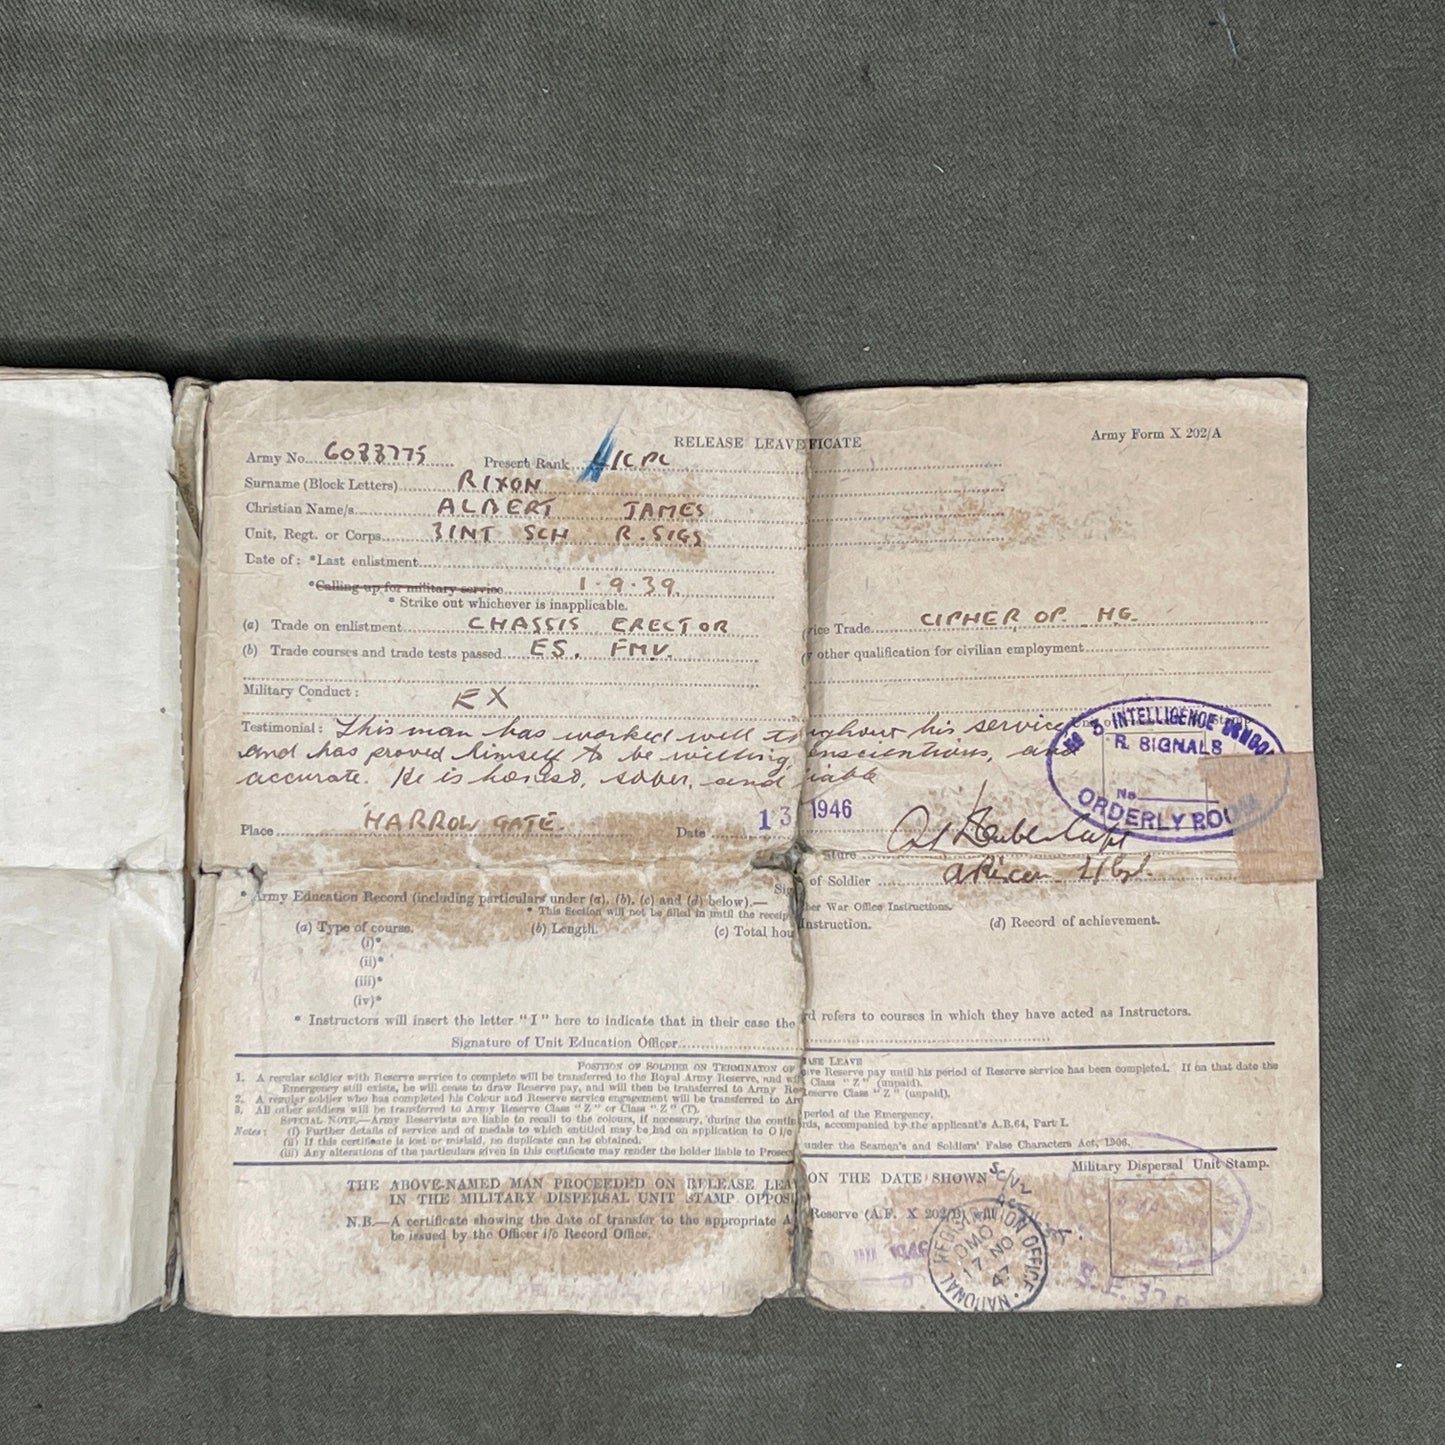 RELEASE LEAVE FICATE Army Form X 202/A
Army No. 6033775 Present Rank /CPL
Surname (Block Letters) RIXON
Christian Name/s ALBERT JAMES
Unit, Regt. or Corps 3 INT SCH R. SIGS
Date of: *Last enlistment
*Calling up for military service 1.9.39.
* Strike out whichever is inapplicable.
(a) Trade on enlistment CHASSIS ERECTOR vice Trade CIPHER OP. HG.
(b) Trade courses and trade tests passed ES. FMV. y other qualification for civilian employment
Military Conduct: EX
Testimonial: This man has worked well t oughout his service
and has proved himself to be willing, onscientious, and
accurate. He is honest, sober, and liable
Unit Stamp
No 3 INTELLIGENCE SCHOOL
R. SIGNALS
No
ORDERLY ROOM
Place HARROW GATE. Date 13 1946
ature
Sig of Soldier A Rixon L/Cpl.
* Army Education Record (including particulars under (a), (b), (c) and (d) below).—
* This Section will not be filled in until the receip her War Office Instructions.
(a) Type of course. (b) Length. (c) Total hou Instruction. (d) Record of achievement.
(i)*
(ii)*
(iii)*
(iv)*
* Instructors will insert the letter "I" here to indicate that in their case the rd refers to courses in which they have acted as Instructors.
Signature of Unit Education Officer
POSITION OF SOLDIER ON TERMINATION OF ASE LEAVE
1. A regular soldier with Reserve service to complete will be transferred to the Royal Army Reserve, and wi ve Reserve pay until his period of Reserve service has been completed. If on that date the
Emergency still exists, he will cease to draw Reserve pay, and will then be transferred to Army Res Class "Z" (unpaid).
2. A regular soldier who has completed his Colour and Reserve service engagement will be transferred to Ar Reserve Class "Z" (unpaid).
3. All other soldiers will be transferred to Army Reserve Class "Z" or Class "Z" (T).
SPECIAL NOTE.—Army Reservists are liable to recall to the colours, if necessary, during the contin period of the Emergency.
Notes: (i) Further details of service and of medals to which entitled may be had on application to O i/c rds, accompanied by the applicant's A.B.64, Part I.
(ii) If this certificate is lost or mislaid, no duplicate can be obtained.
(iii) Any alterations of the particulars given in this certificate may render the holder liable to Prosec under the Seamen's and Soldiers' False Characters Act, 1906.
THE ABOVE-NAMED MAN PROCEEDED ON RELEASE LEA ON THE DATE SHOWN Military Dispersal Unit Stamp.
IN THE MILITARY DISPERSAL UNIT STAMP OPPOS
N.B.—A certificate showing the date of transfer to the appropriate A Reserve (A.F. X 202/B) will
be issued by the Officer i/c Record Office.
NATIONAL REGISTRATION OFFICE
17 NO
47